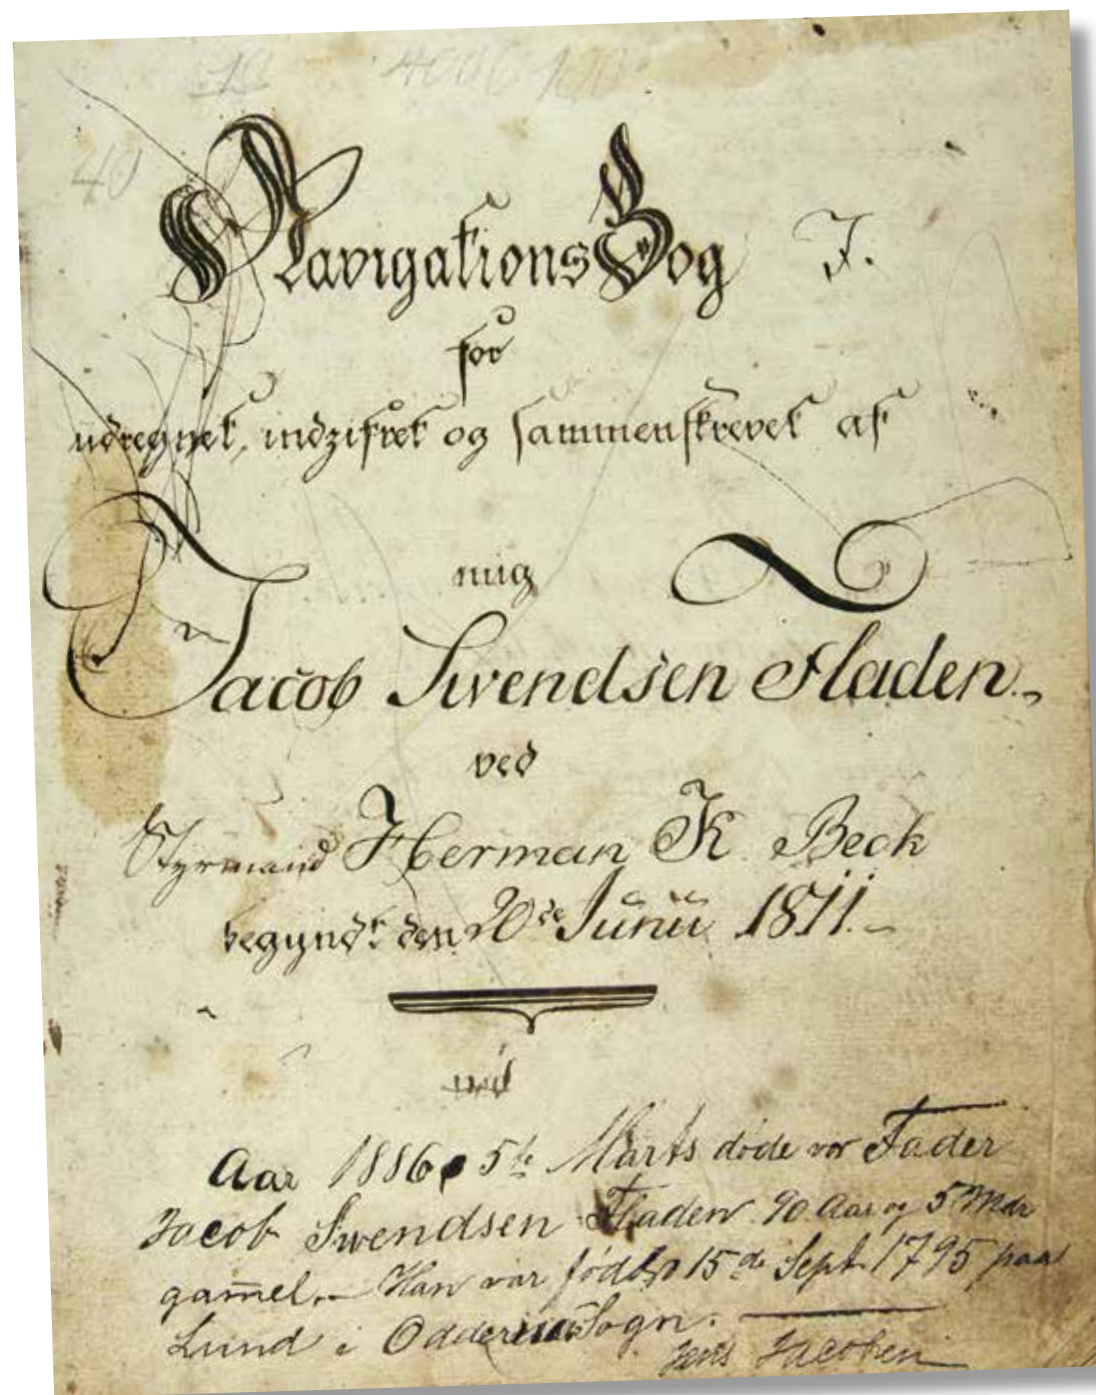 40
NavigationsBog I.
for
udregnet, indzifret og sammenskrevet af
mig
Jacob Swendsen Fladen.
ved
Styrmand Herman K Beck
begyndt den 20de Junii 1811.
ved
Aar 1886 5te Marts döde vor Fader
Jacob Swendsen Fladen 90 Aar og 5 Mdr
gam̄el. Han var född 15de Sept. 1795 paa
Lund i Sogn.
Jens Jacobsen